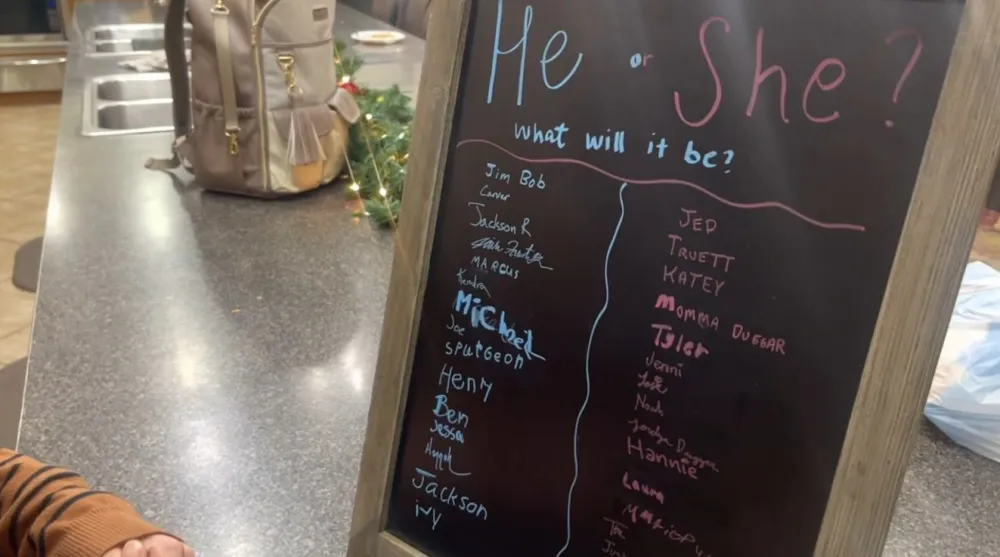 He or She?
what will it be?
Jim Bob
Carver
Jackson R
MARCUS
Kendra
Michael
Joe
SPURGEON
Henry
Ben
Jessa
Hannah
Jackson
ivy
JED
TRUETT
KATEY
MOMMA DUGGAR
Tyler
Jenni
Josie
Noah
Jordyn Duggar
Hannie
Laura